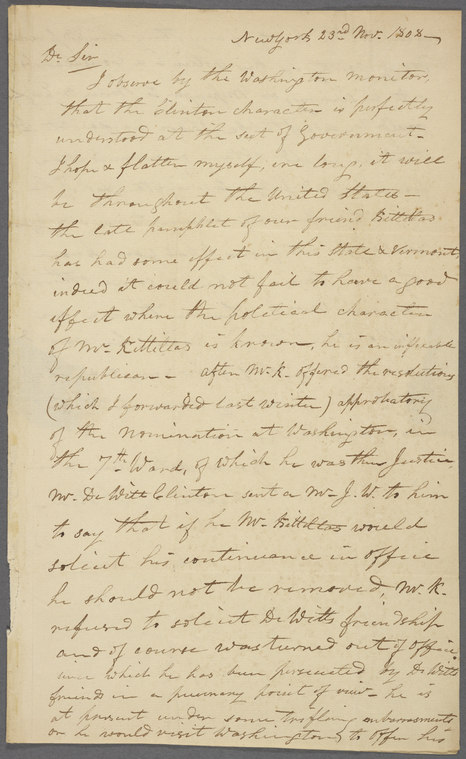 New York 23rd Nov. 1808—
Dr. Sir
I observe by the Washington monitor,
that the Clinton character is perfectly
understood at the seat of Government—
I hope & flatter myself, ere long, it will
be throughout the United States—
the late pamphlet of our friend Kittletas
has had some effect in this State & Vermont,
indeed it could not fail to have a good
effect where the political character
of Mr. Kittletas is known, he is an inflexible
republican— after Mr. K. offered the resolutions
(which I forwarded last winter) approbatory
of the nomination at Washington, in
the 7th Ward, of which he was then Justice,
Mr. De Witt Clinton sent a Mr. J. W. to him
to say that if he Mr. Kittletas would
solicit his continuance in office
he should not be removed, Mr. K.
refused to solicit De Witts friendship
and of course was turned out of office,
since which he has been persecuted by De Witts
friends in a pecuniary point of view— he is
at present under some trifling embarrasments
or he would visit Washington, to offer his